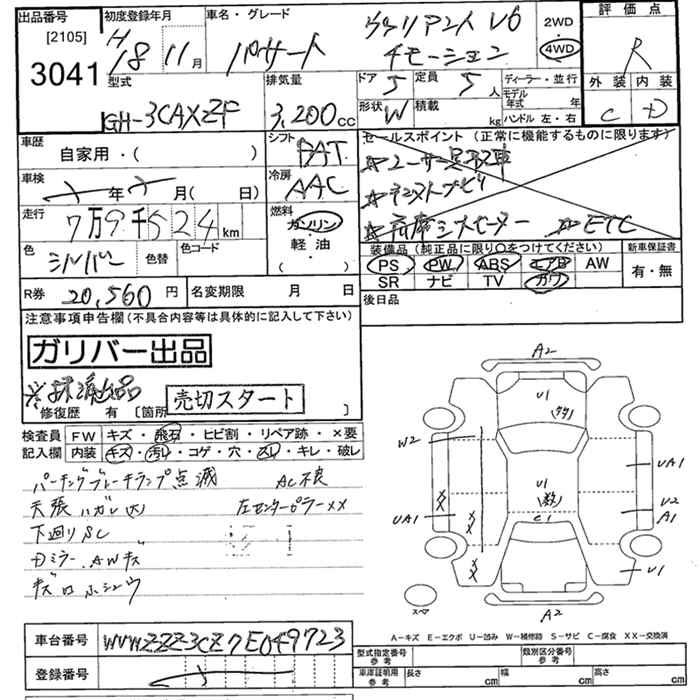 出品番号 初度登録年月 車名・グレード 評価点
[2105] H 18 11月 パサート ヴァリアント V6 2WD R
3041 4モーション 4WD
型式 排気量 ドア 5 定員 5人 ディーラー・並行 外装 内装
GH-3CAXZF 3,200cc 形状 W 積載 kg モデル年式 年式 C D
ハンドル 左・右
車歴 自家用・( ) シフト FAT セールスポイント (正常に機能するものに限ります)
車検 年 月(日) 冷房 AAC ☆ユーザー買取車
走行 7万9千524km 燃料 ガソリン ☆
色 シルバー 色替 色コード 軽・油 ( ) ☆ ☆ETC
装備品 (純正品に限り○をつけてください) 新車保証書
PS PW ABS エアB AW 有・無
SR ナビ TV カワ
R券 20,560円 名変期限 月 日 後日品
注意事項申告欄(不具合内容等は具体的に記入して下さい)
ガリバー出品
売切スタート
修復歴 有 [箇所 ]
検査員 FW キズ・飛石・ヒビ割・リペア跡・×要
記入欄 内装 キズ・汚レ・コゲ・穴・スレ・キレ・破レ
パーキングブレーキランプ点滅 AC不良
天張ハガレ(大) 左センターピラーXX
下廻りSC
Dミラー、AWキズ
キズ口ホシュウ
A2
U1
W2
UA1
U1
U2
A1
UA1
XX
XX
C1
XX
U1
スペア
A2
A-キズ E-エクボ U-凹み W-補修跡 S-サビ C-腐食 XX-交換済
車台番号 WVWZZZ3CZ7E049723
登録番号
型式指定番号 参考 類別区分番号 参考
車庫証明用 参考 長さ cm 幅 cm 高さ cm